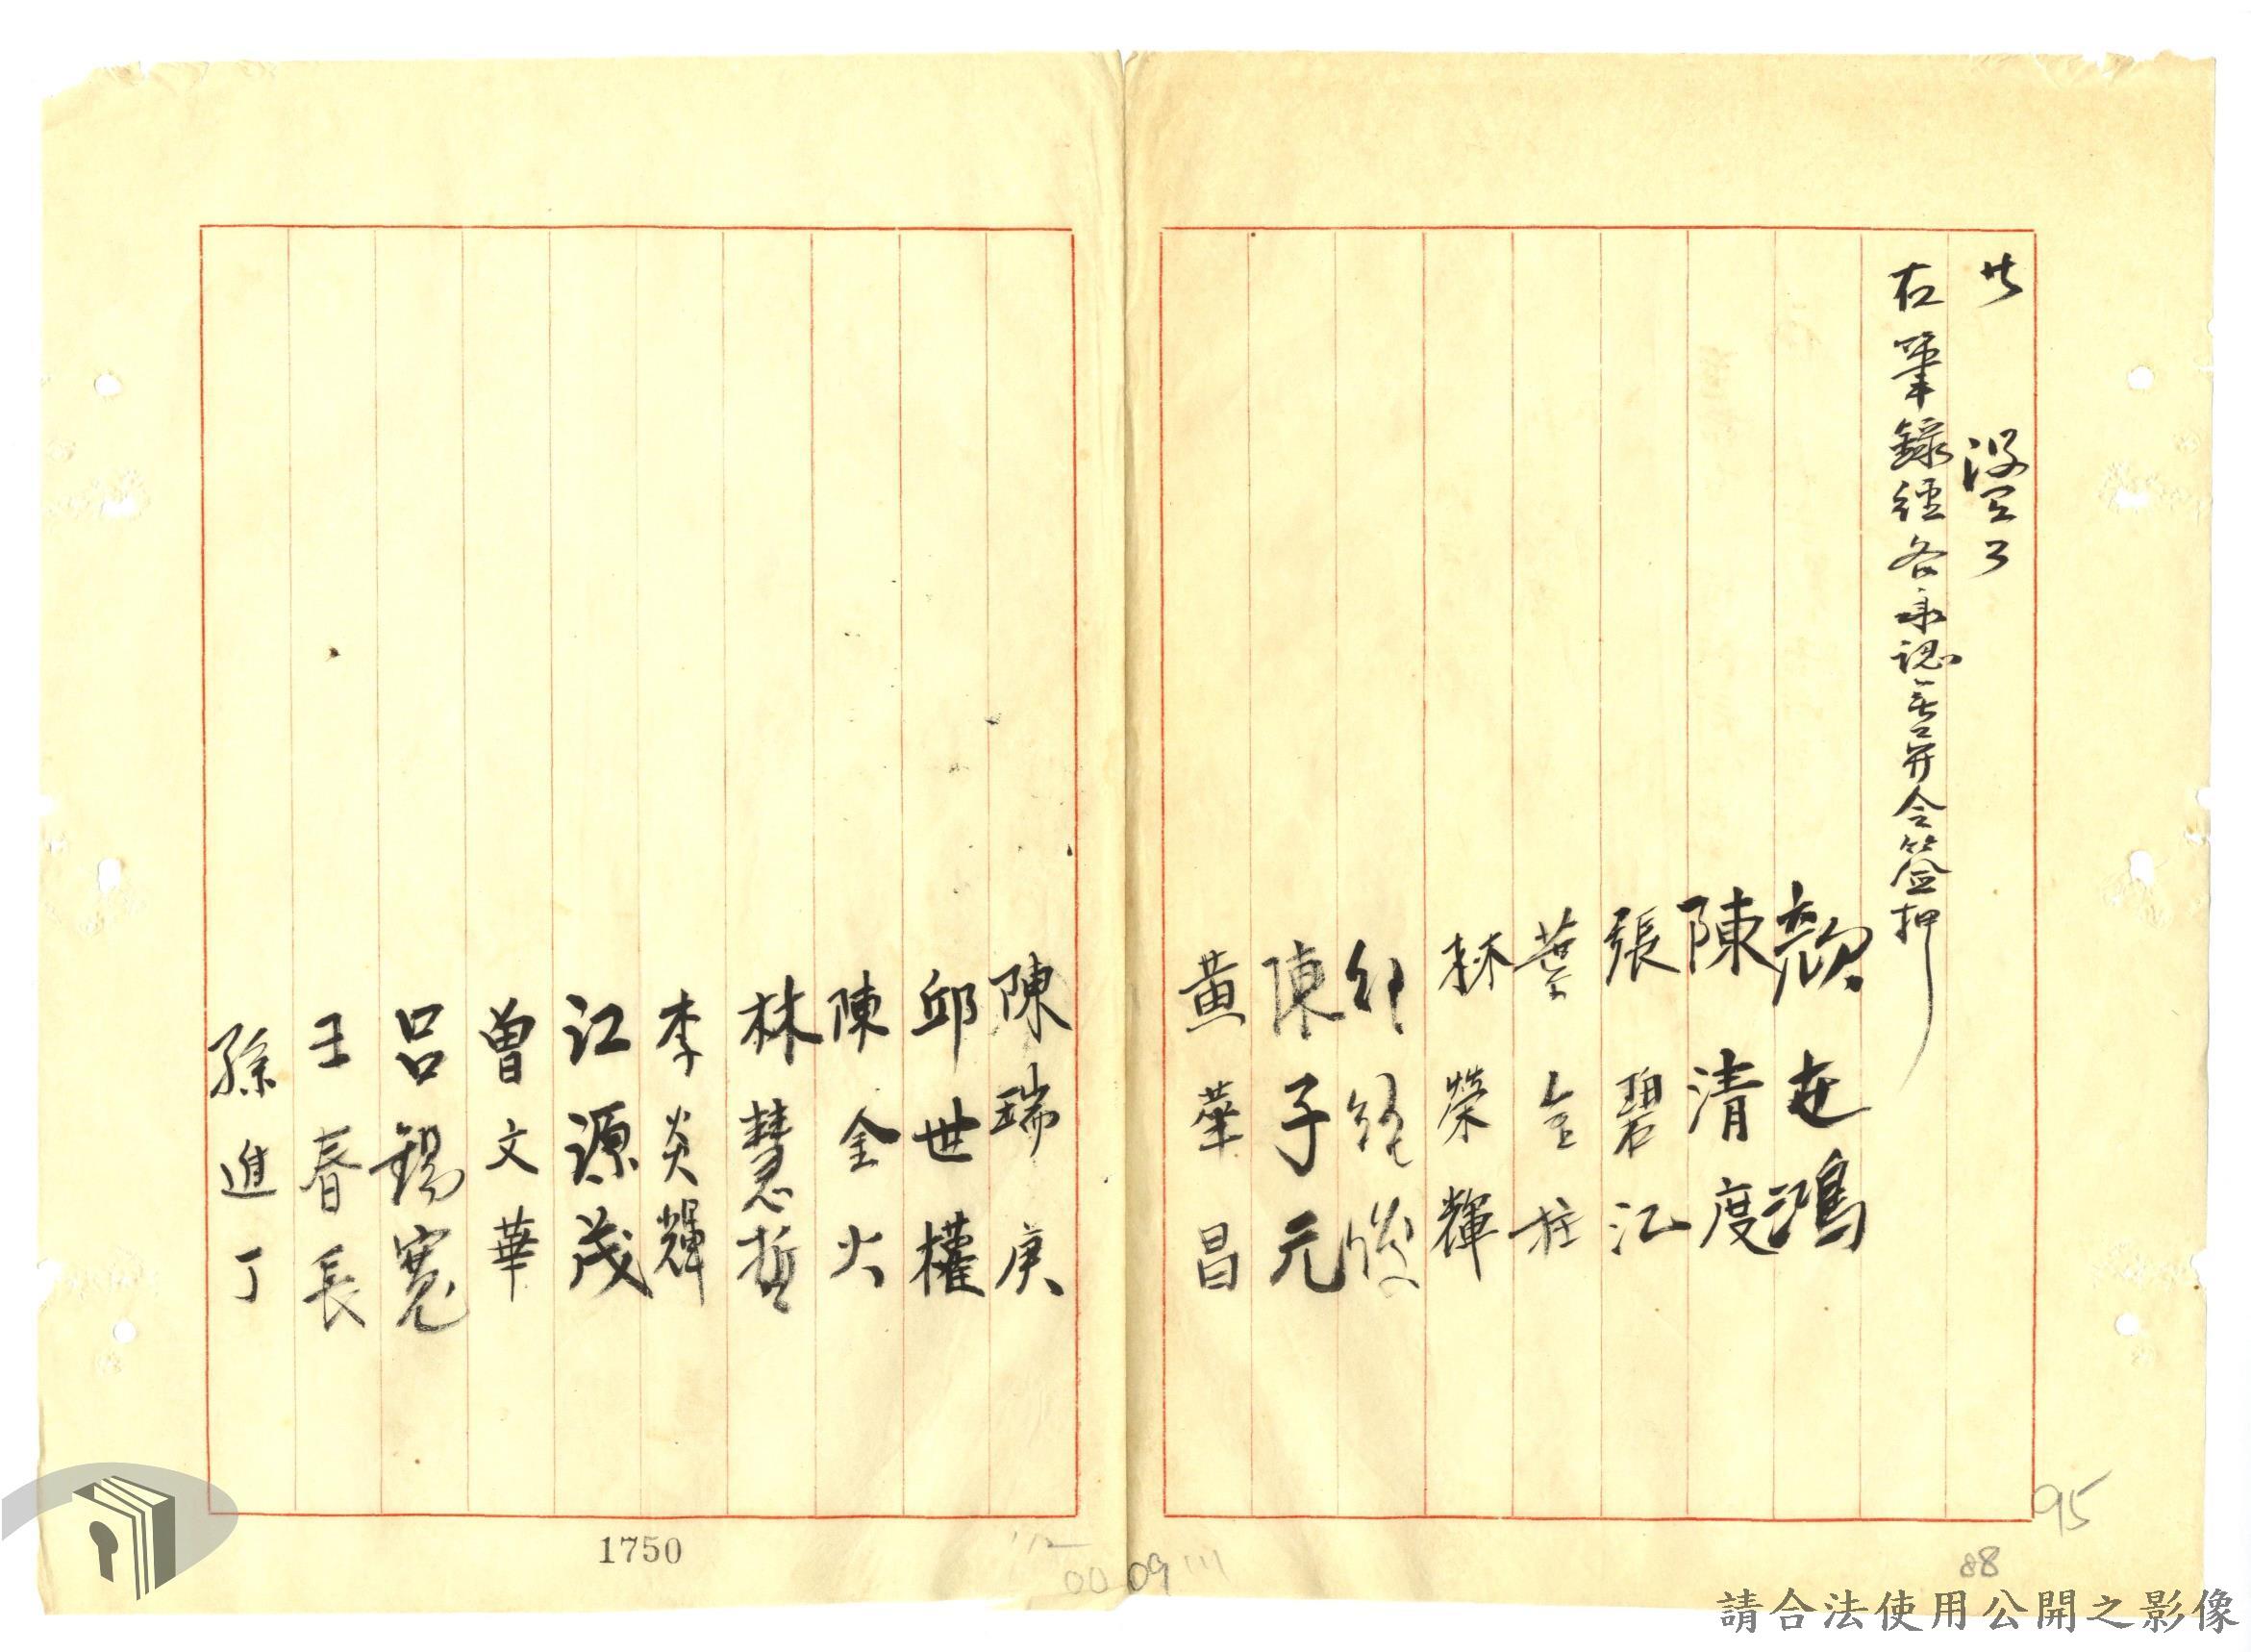 共 沒有了
右筆錄經各承認無異并令簽押
顏世鴻
陳清度
張碧江
葉金柱
林榮輝
陳子元
黃華昌
陳瑞庚
邱世權
陳金火
林慧哲
李炎輝
江源茂
曾文華
呂錫寬
王春長
孫進丁
1750
0009111
95
88
請合法使用公開之影像